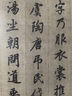 字乃服衣裳推
虞陶唐弔民伐
湯坐朝問道垂